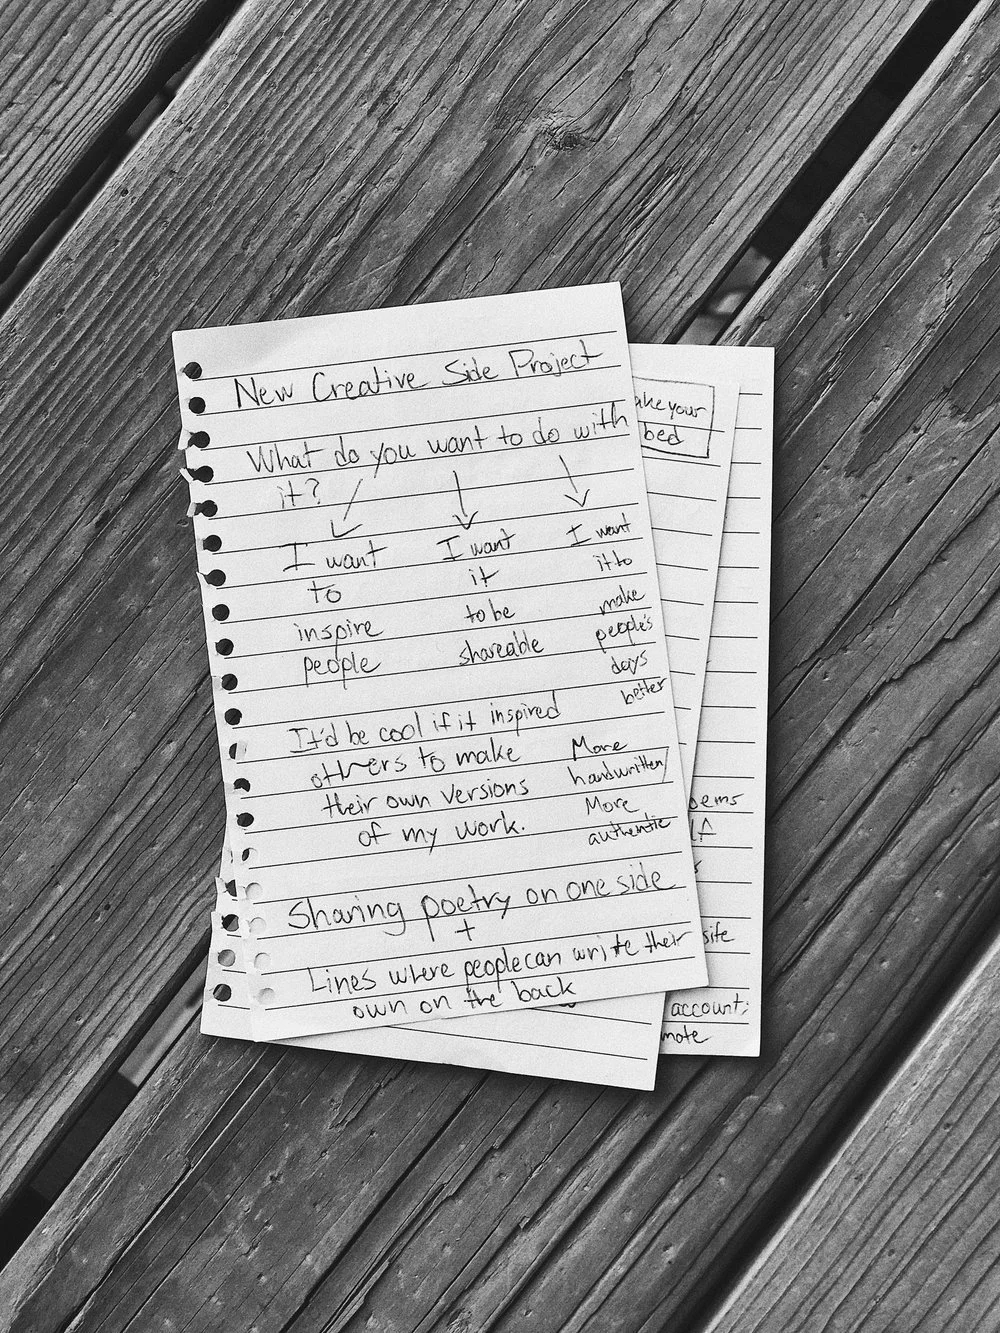 New Creative Side Project
What do you want to do with
it?
I want
to
inspire
people
I want
it
to be
shareable
I want
it to
make
people's
days
better
It'd be cool if it inspired
others to make
their own versions
of my work.
More
handwritten
More
authentic
Sharing poetry on one side
+
Lines where people can write their
own on the back
ake your
bed
oems
site
account;
mote